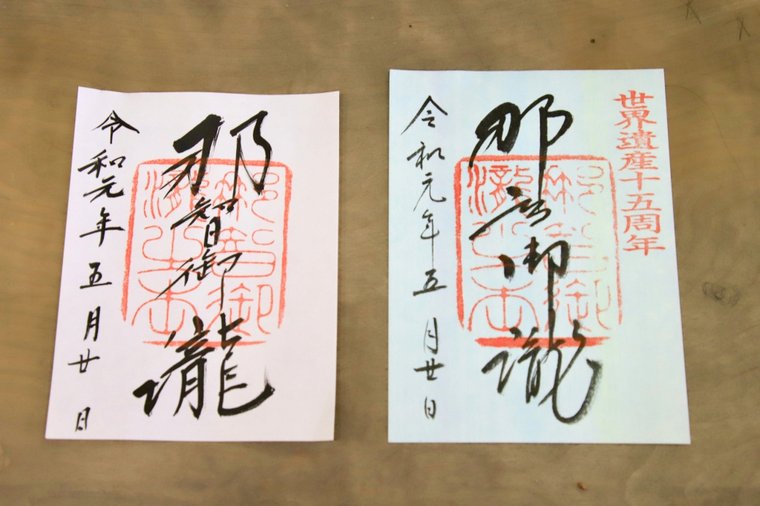 那智御瀧
令和元年五月廿日
世界遺産十五周年
那智御瀧
令和元年五月廿日